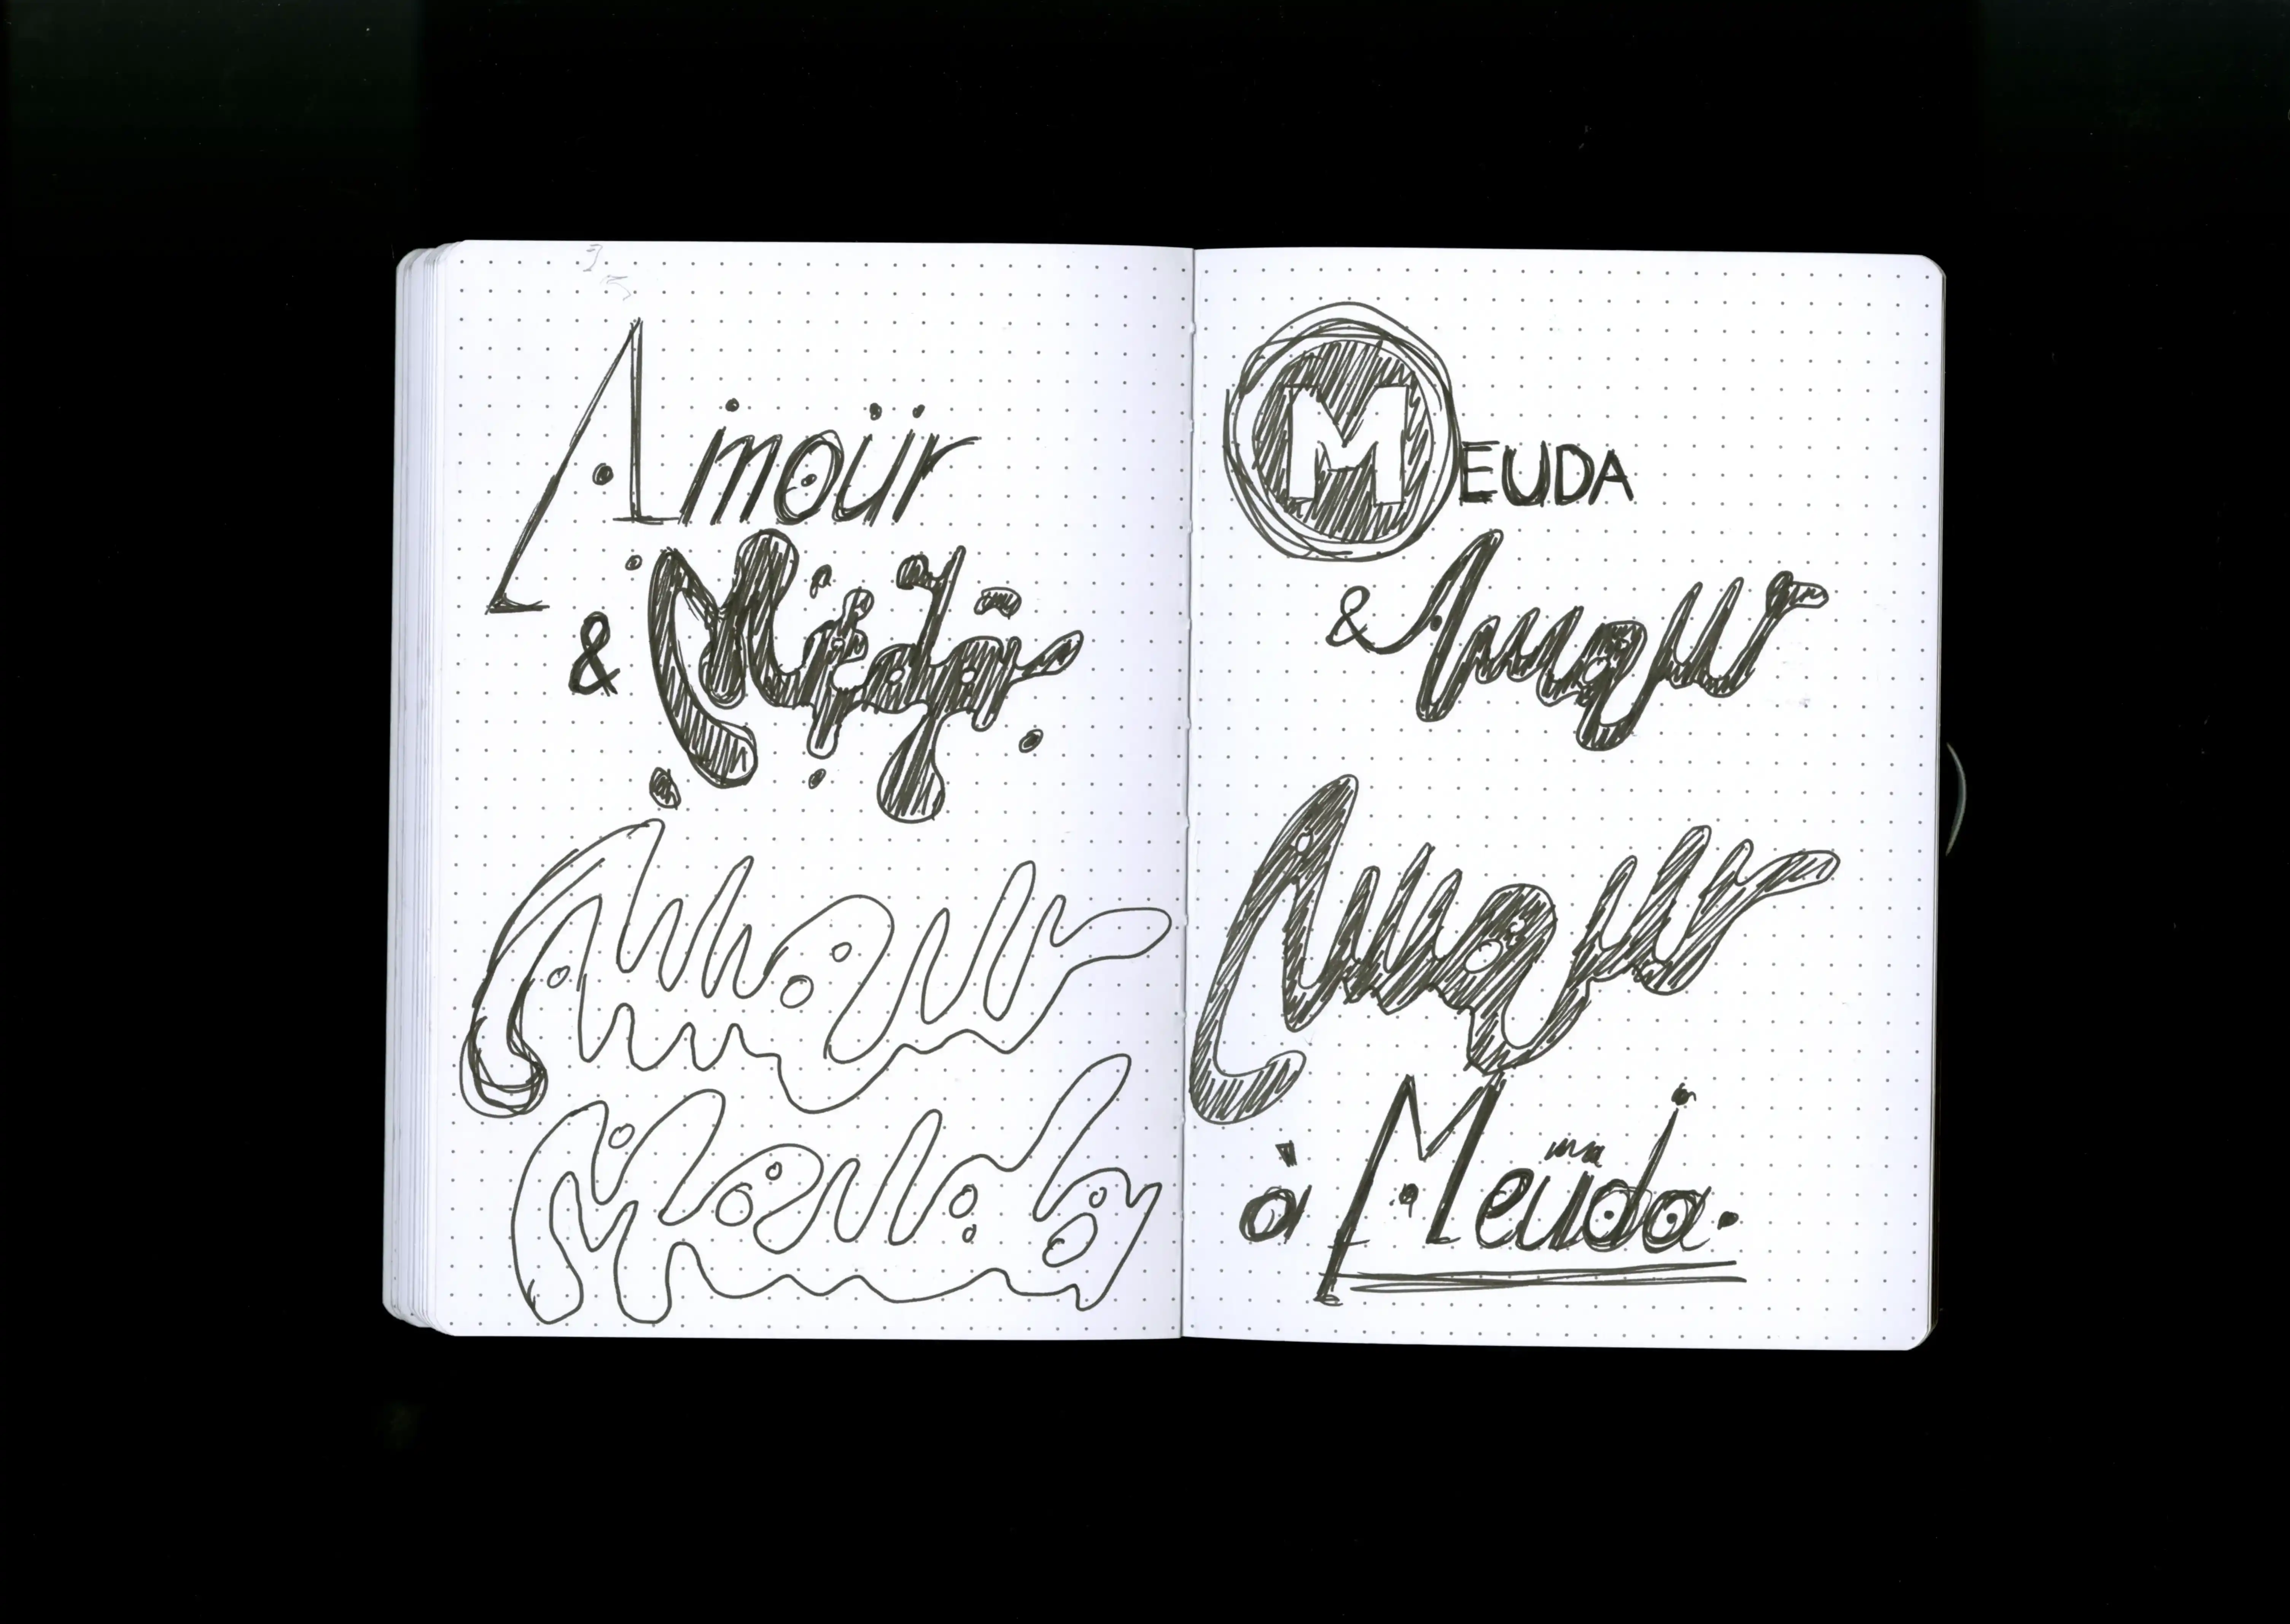 Amoür
& Meuda
Amour
Meuda
MEUDA
& Amour
Amour
à Meüda.